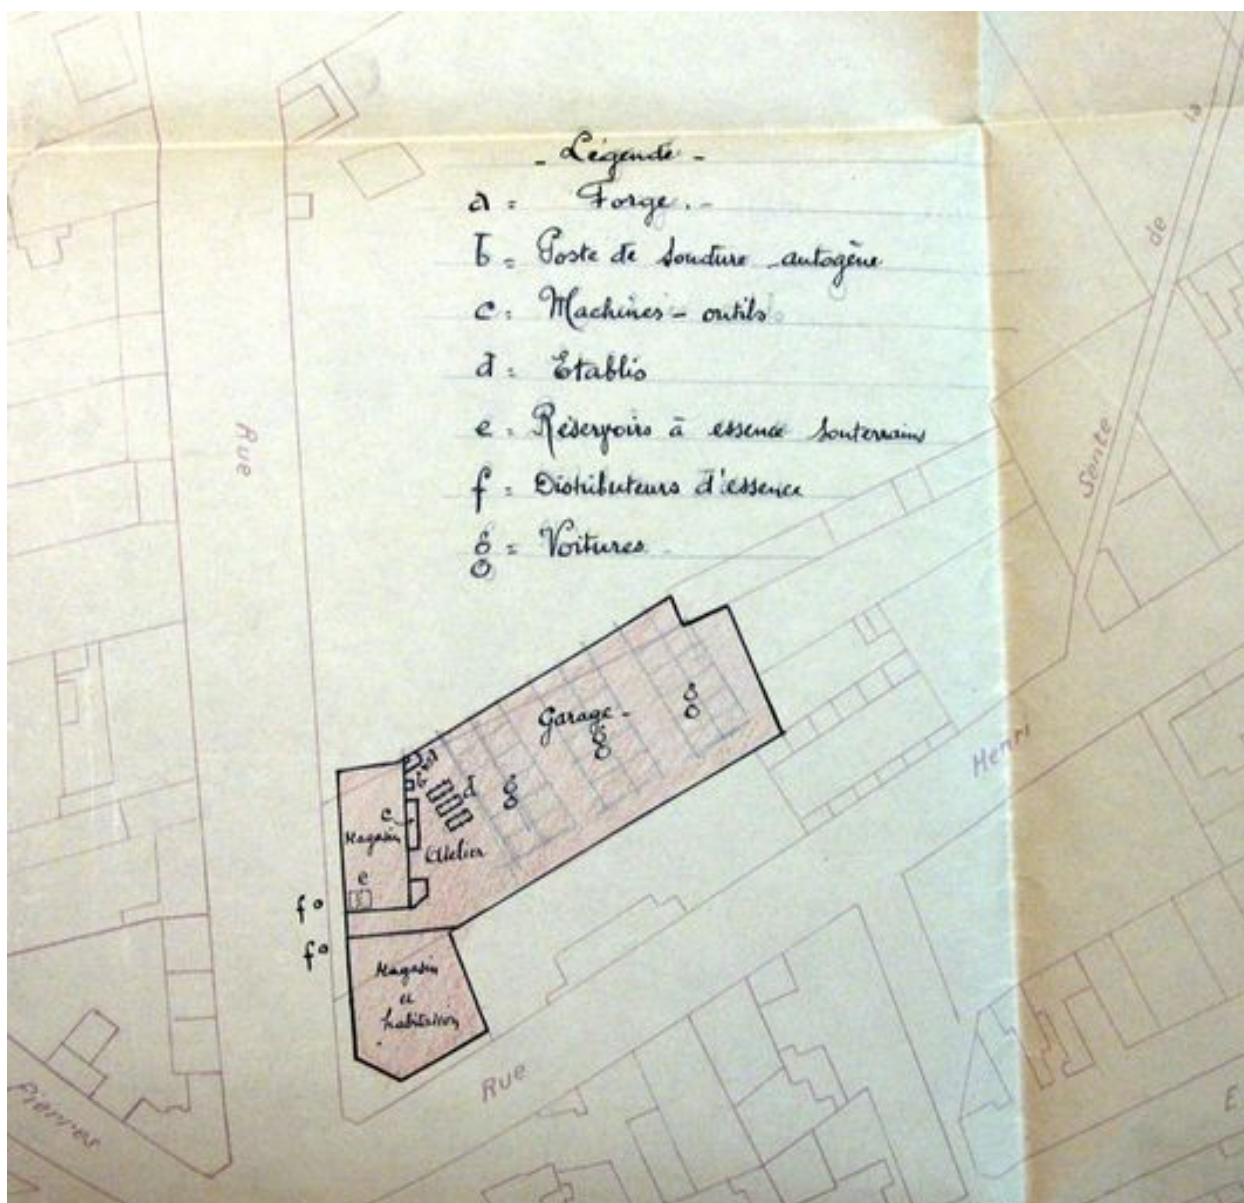 - Légende -
a = Forge. -
b = Poste de soudure autogène
c = Machines - outils
d = Etablis
e = Réservoirs à essence souterrains
f = Distributeurs d'essence
8 = Voitures
o
Rue
Sente de la
Garage -
a
b
d
c
Magasin
Atelier
e
f
f
Magasin
et
habitation
Rue Henri
Pierres
E